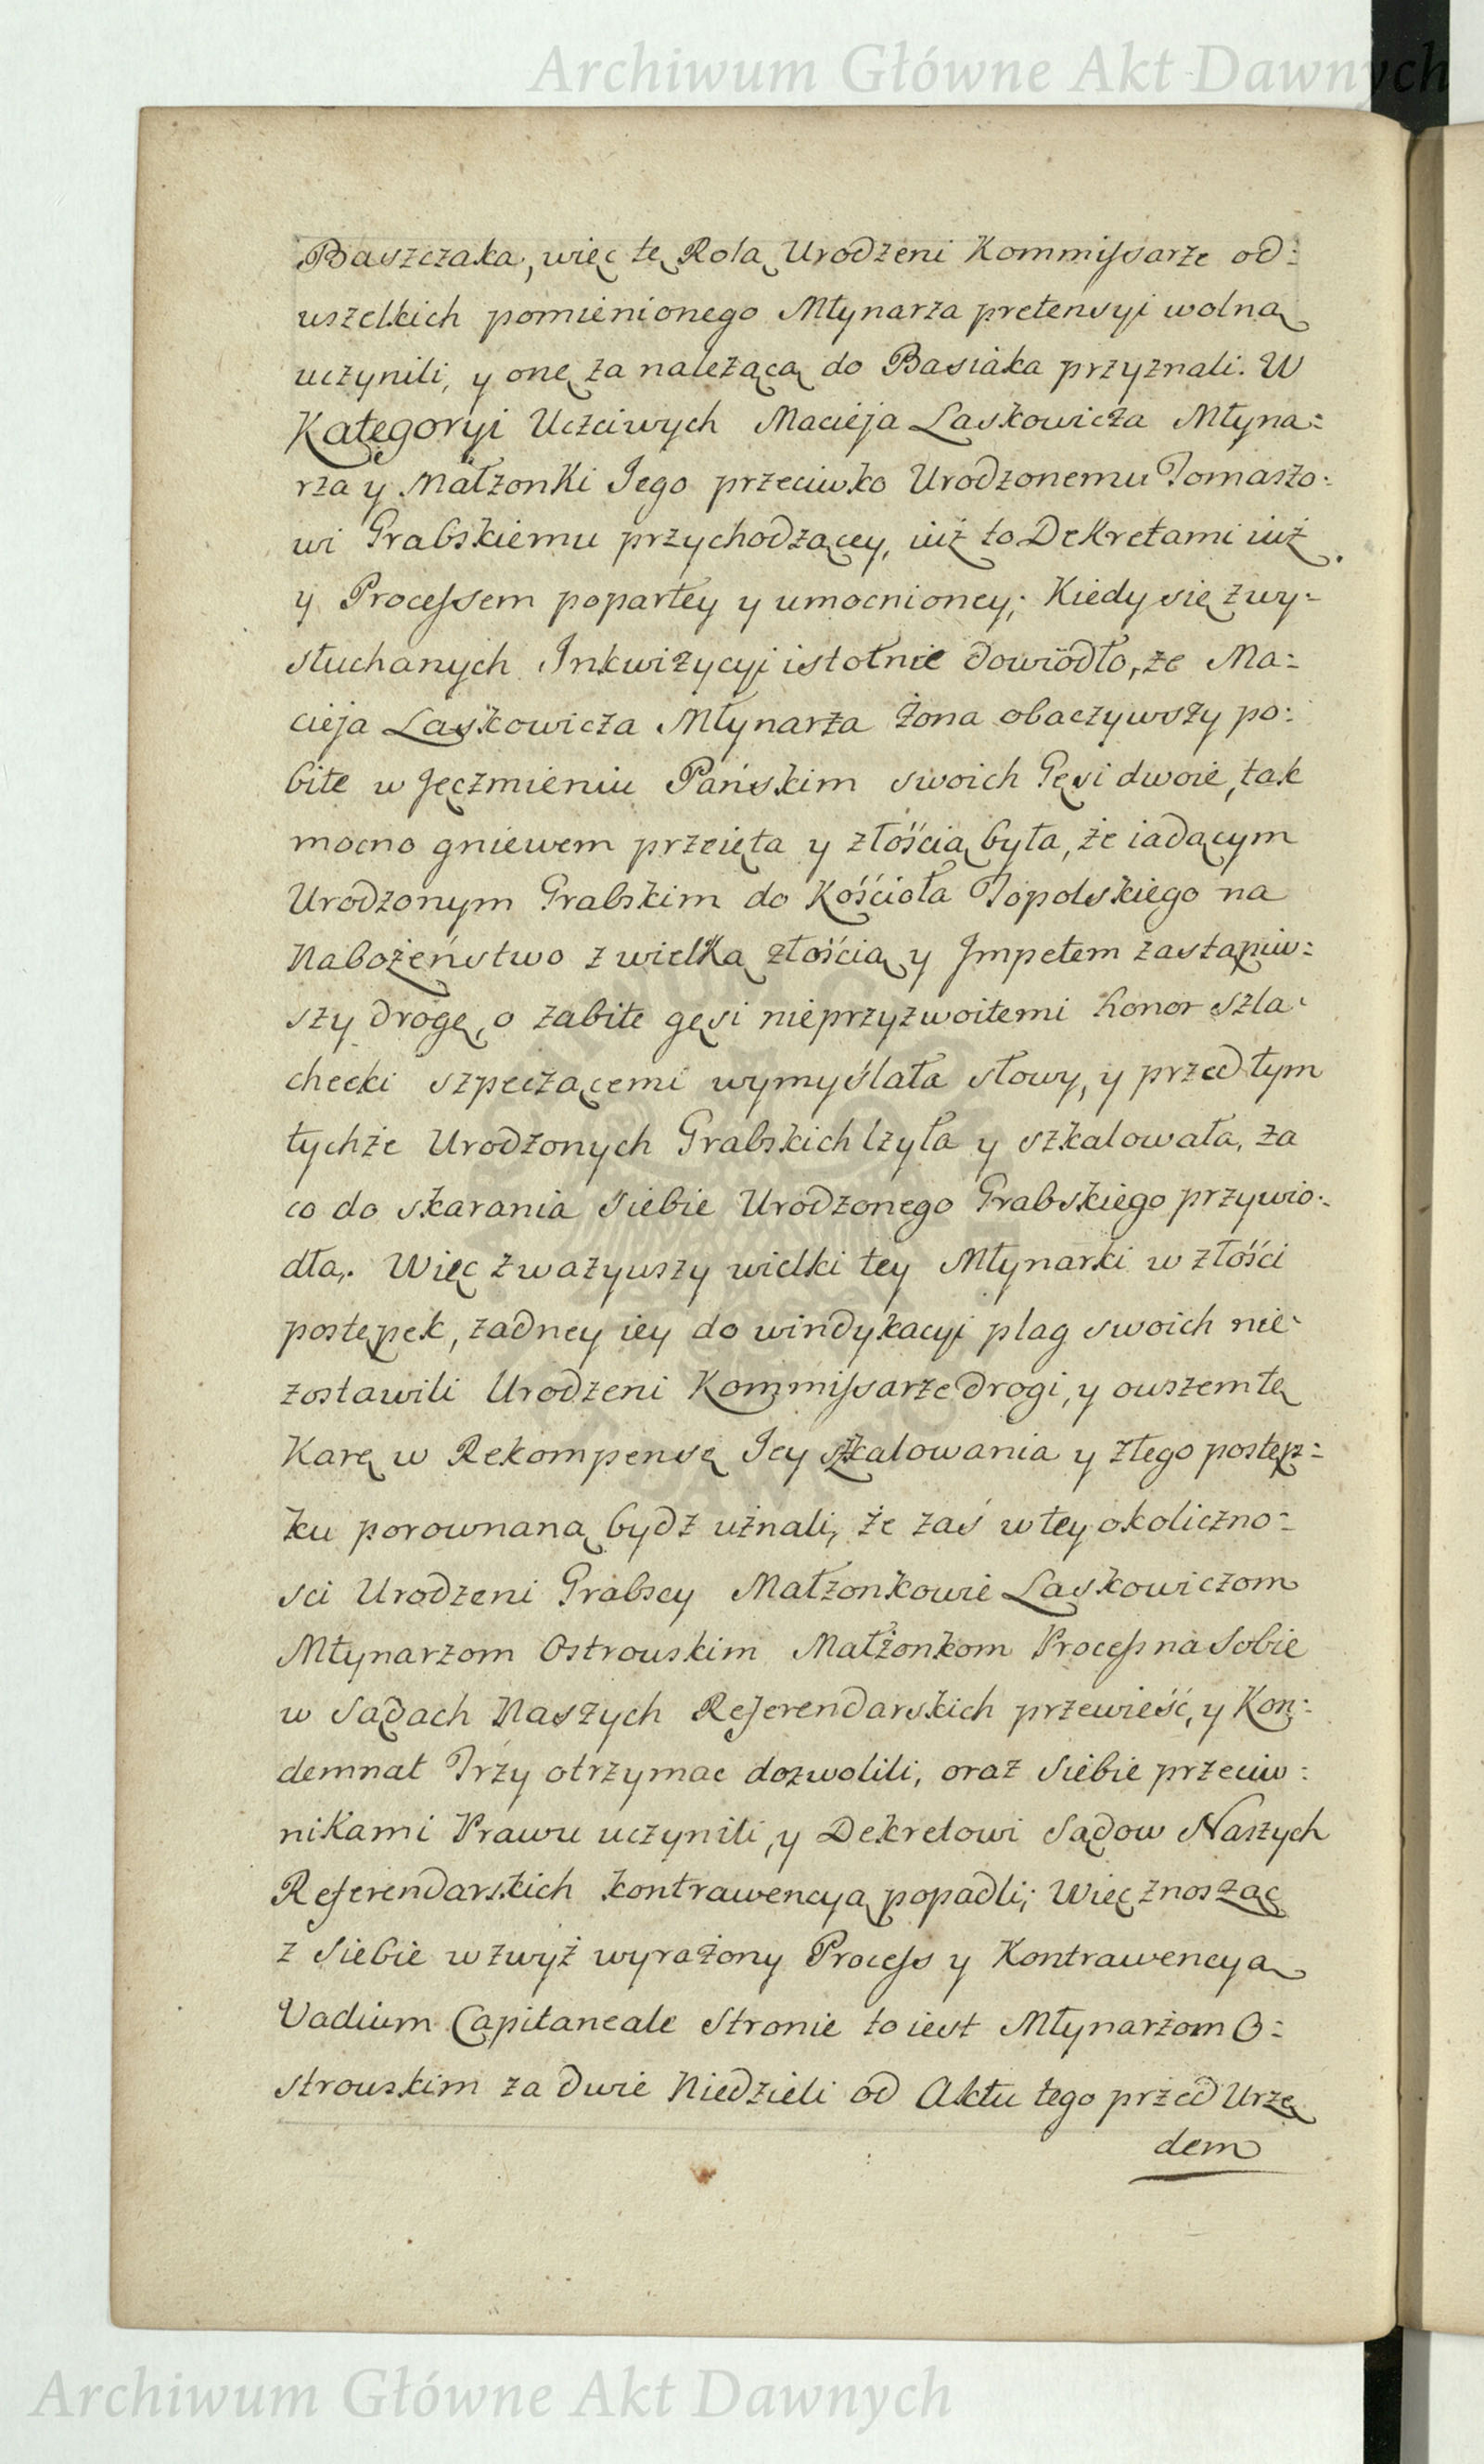 Archiwum Główne Akt Dawnych
Baszczaka, więc tę Rolą Urodzeni Kommissarze od:
wszelkich pomienionego Młynarza pretensyi wolną
uczynili, y onę za należącą do Basiaka przyznali. W
Kategoryi Uczciwych Macieja Laskowicza Młyna:
rza y Małzonki Jego przeciwko Urodzonemu Tomaszo:
wi Grabskiemu przychodzącey, iuż to Dekretami iuż
y Processem popartey y umocnioney; Kiedy się zwy:
słuchanych Inkwizycyi istotnie dowiodło, ze Ma:
cieja Laskowicza Młynarza Żona obaczywszy po:
bite w Jęczmieniu Pańskim swoich Gęsi dwoie, tak
mocno gniewem przeięta y złością była, że iadącym
Urodzonym Grabskim do Kościoła Topolskiego na
Nabożeństwo z wielką złością y Jmpetem zastąpiw:
szy drogę, o zabite gęsi nieprzyzwoitemi honor szla:
checki szpeczącemi wymyślała słowy, y przed tym
tychże Urodzonych Grabskich lzyła y szkalowała, za
co do skarania Siebie Urodzonego Grabskiego przywio:
dła. Więc zwazywszy wielki tey Młynarki w złości
postępek, zadney iey do windykacyi plag swoich nie
zostawili Urodzeni Kommissarze drogi, y owszem tę
Karę w Rekompensę Jey szkalowania y złego postęp:
ku porownaną bydz uznali, że zaś w tey okoliczno:
sci Urodzeni Grabscy Małzonkowie Laskowiczom
Młynarzom Ostrowskim Małżonkom Process na Sobie
w Sądach Naszych Referendarskich przewieść, y Kon:
demnat Trzy otrzymac dozwolili, oraz Siebie przeciw:
nikami Prawu uczynili, y Dekretowi Sądow Naszych
Referendarskich kontrawencyą popadli; Więc znosząc
z Siebie wzwyż wyrażony Process y Kontrawencyą
Vadium Capitaneale Stronie to iest Młynarzom O:
strowskim za dwie Niedzieli od Aktu tego przed Urzę
dem
Archiwum Główne Akt Dawnych